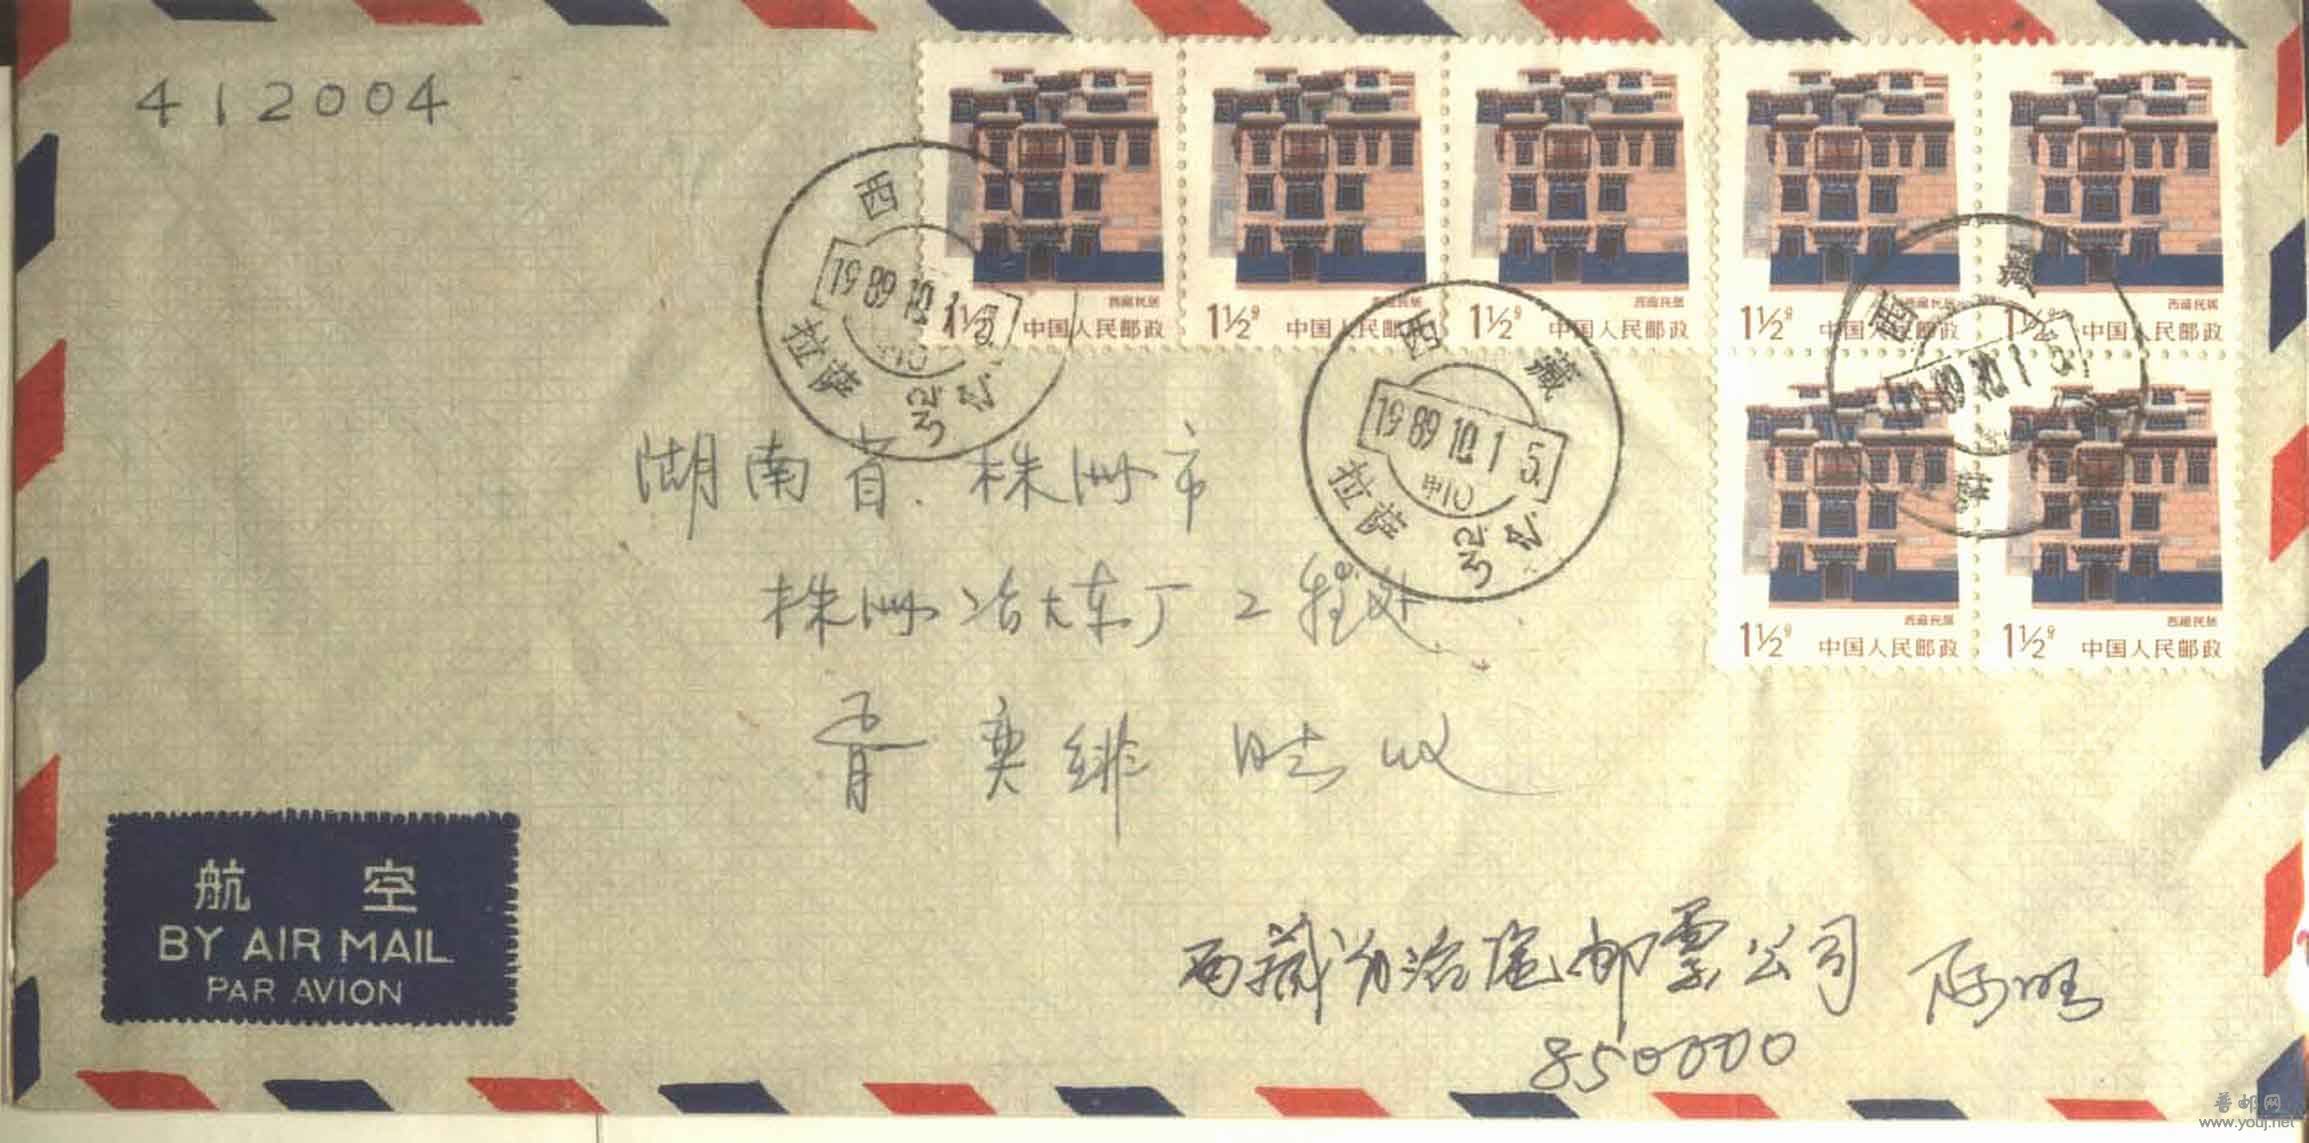 412004
西藏民居
1½分 中国人民邮政
西藏民居
1½分 中国人民邮政
西藏民居
1½分 中国人民邮政
西藏民居
1½分 中国人民邮政
西藏民居
1½分 中国人民邮政
西藏民居
1½分 中国人民邮政
西藏民居
1½分 中国人民邮政
西
1989.10.1 5.
拉萨
西藏
1989.10.1 5.
拉萨
西藏
1989.10.1 5.
湖南省 株洲市
株洲冶 厂工程处
收
航空
BY AIR MAIL
PAR AVION
西藏自治区邮票公司 阿旺
850000
普邮网
www.youj.net